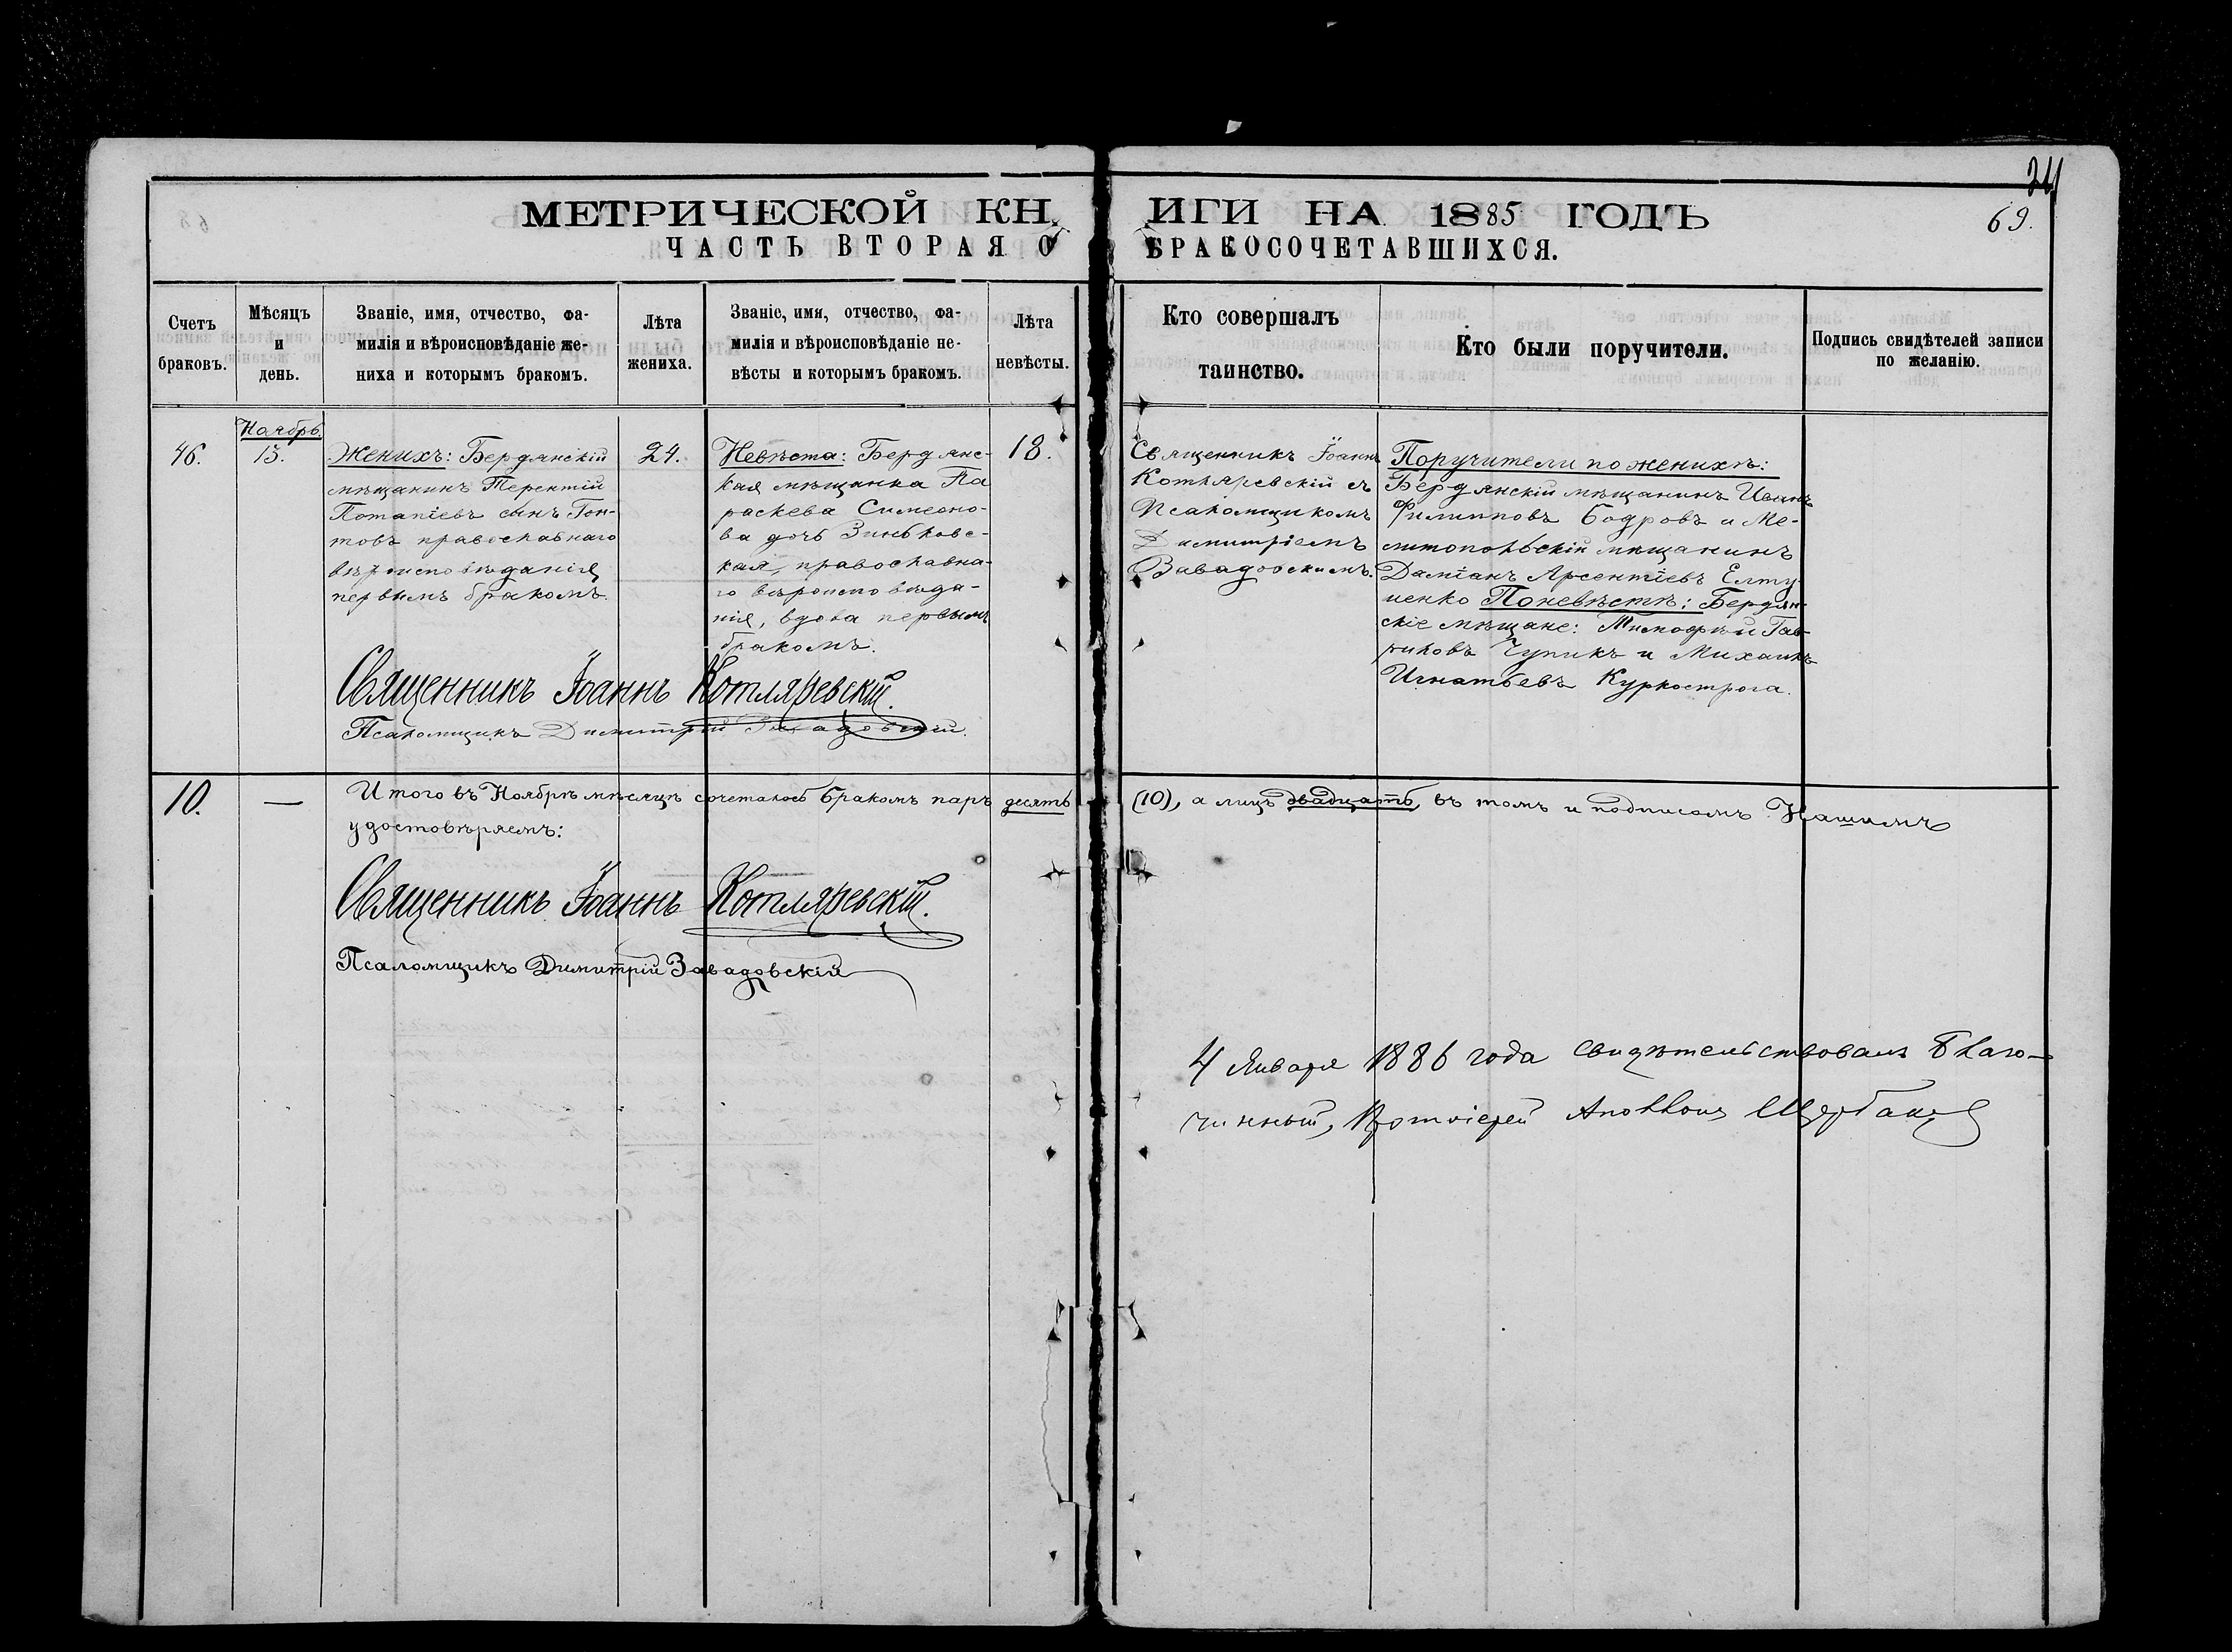 241
69.
МЕТРИЧЕСКОЙ КНИГИ НА 1885 ГОДЪ
ЧАСТЬ ВТОРАЯ О БРАКОСОЧЕТАВШИХСЯ.
Счетъ
браковъ.
Мѣсяцъ
и
день.
Званіе, имя, отчество, фа-
милія и вѣроисповѣданіе же-
ниха и которымъ бракомъ.
Лѣта
жениха.
Званіе, имя, отчество, фа-
милія и вѣроисповѣданіе не-
вѣсты и которымъ бракомъ.
Лѣта
невѣсты.
Кто совершалъ
таинство.
Кто были поручители.
Подпись свидѣтелей записи
по желанію.
46.
Ноябрь.
13.
Женихъ: Бердянскій
мѣщанинъ Терентій
Потапіевъ сынъ Гон-
товъ православнаго
вѣроисповѣданія,
первымъ бракомъ.
24.
Невѣста: Бердянс-
кая мѣщанка Па
раскева Симеоно-
ва дочь Зиньковс-
кая, православна-
го вѣроисповѣда-
нія, вдова первымъ
бракомъ.
18.
Священникъ Іоаннъ
Котляревскій съ
Псаломщикомъ
Димитріемъ
Завадовскимъ.
Поручители по женихѣ:
Бердянскій мѣщанинъ Иванъ
Филипповъ Бодровъ и Ме-
литопольскій мѣщанинъ
Даміанъ Арсентіевъ Елту
ненко По невѣстѣ: Бердян-
скіе мѣщане: Тимофей Гав-
риловъ Чупикъ и Михаилъ
Игнатьевъ Куркострога.
Священникъ Іоаннъ Котляревскій.
Псаломщикъ Димитрій Завадовскій.
10.
—
Итого въ Ноябрѣ мѣсяцѣ сочеталось бракомъ паръ десять (10), а лицъ двадцать, въ томъ и подписомъ Нашимъ
удостовѣряемъ:
Священникъ Іоаннъ Котляревскій.
Псаломщикъ Димитрій Завадовскій
4 Января 1886 года свидѣтельствовалъ Благо-
чинный, Протоіерей Аполлонъ